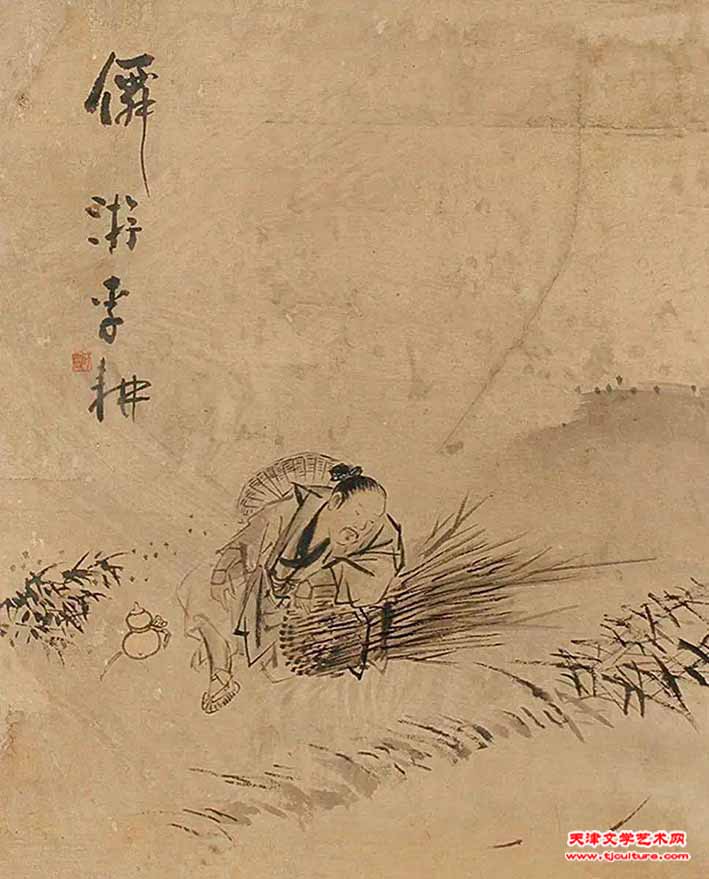 僊游李耕
天津文学艺术网
www.tjculture.com